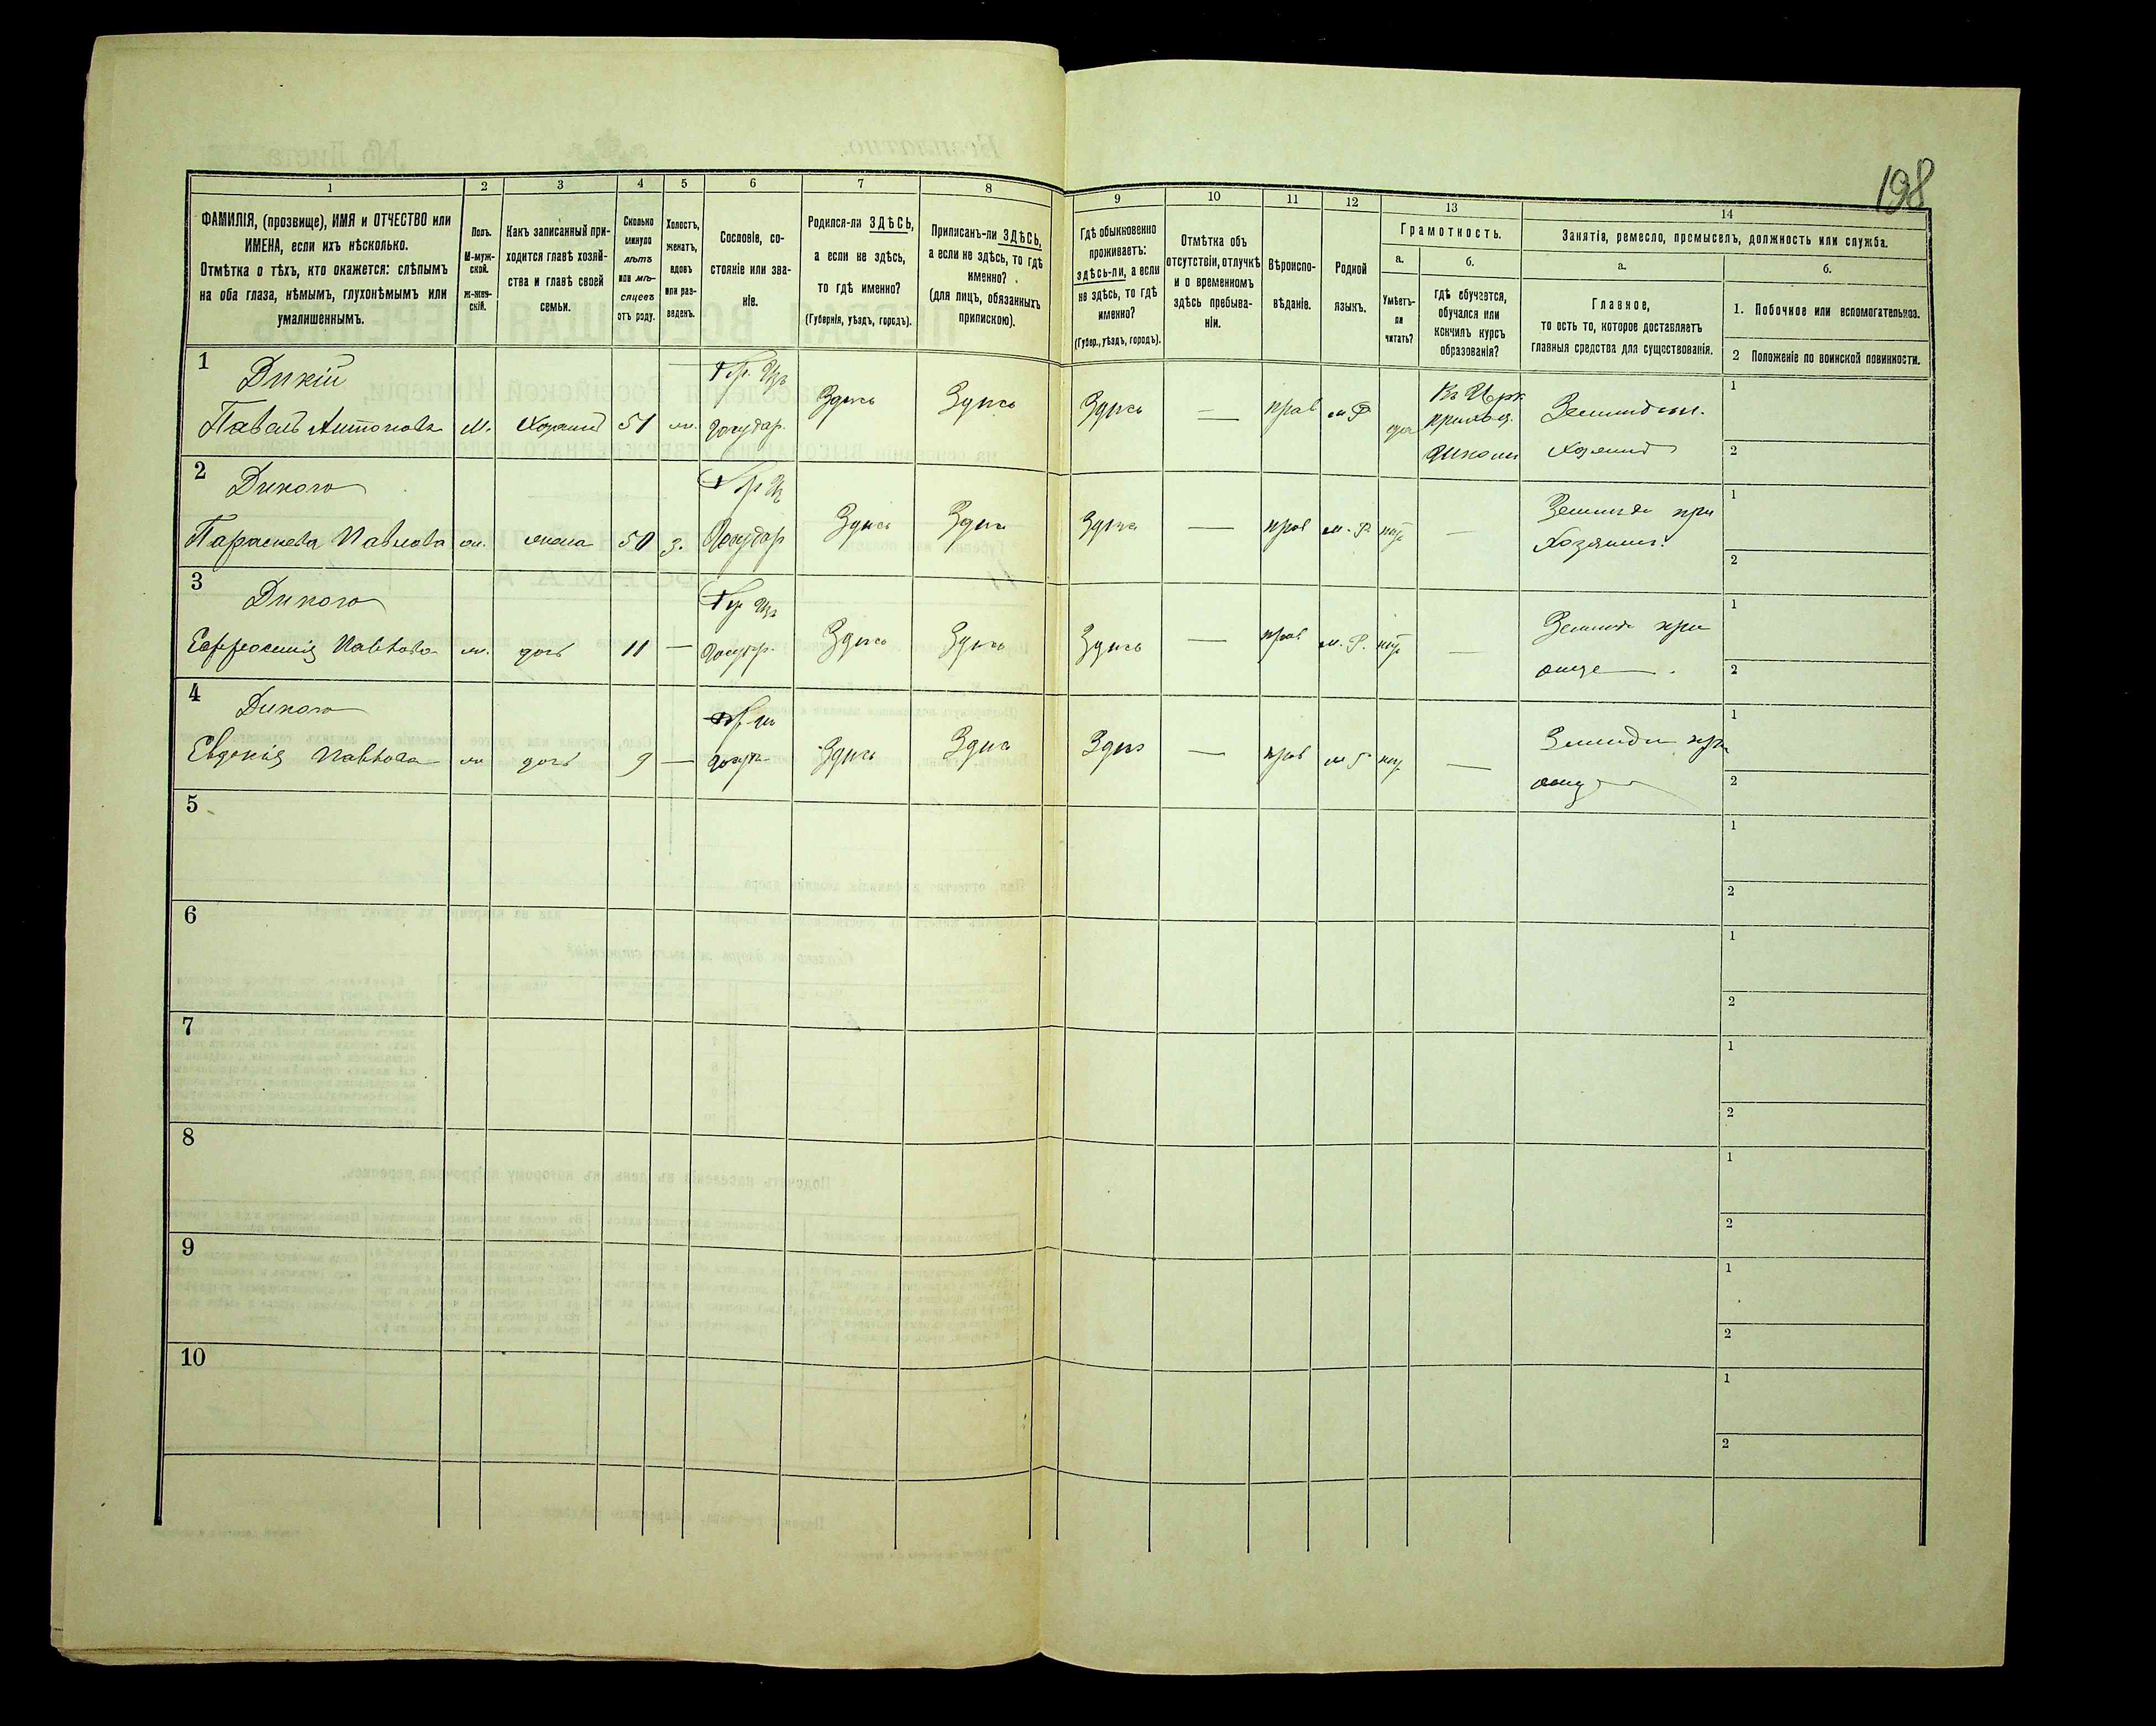 198
1 2 3 4 5 6 7 8 9 10 11 12 13 14
ФАМИЛІЯ, (прозвище), ИМЯ и ОТЧЕСТВО или
ИМЕНА, если ихъ нѣсколько.
Отмѣтка о тѣхъ, кто окажется: слѣпымъ
на оба глаза, нѣмымъ, глухонѣмымъ или
умалишеннымъ.
Полъ.
М-муж-
ской.
ж-жен-
скій.
Какъ записанный при-
ходится главѣ хозяй-
ства и главѣ своей
семьи.
Сколько
минуло
лѣтъ
или мѣ-
сяцевъ
отъ роду.
Холостъ,
женатъ,
вдовъ
или раз-
веденъ.
Сословіе, со-
стояніе или зва-
ніе.
Родился-ли ЗДѢСЬ,
а если не здѣсь,
то гдѣ именно?
(Губернія, уѣздъ, городъ).
Приписанъ-ли ЗДѢСЬ,
а если не здѣсь, то гдѣ
именно?
(для лицъ, обязанныхъ
припискою).
Гдѣ обыкновенно
проживаетъ:
здѣсь-ли, а если
не здѣсь, то гдѣ
именно?
(Губер., уѣздъ, городъ).
Отмѣтка объ
отсутствіи, отлучкѣ
и о временномъ
здѣсь пребыва-
ніи.
Вѣроиспо-
вѣданіе.
Родной
языкъ.
Грамотность.
а.
Умѣетъ-
ли
читать?
б.
гдѣ обучается,
обучался или
кончилъ курсъ
образованія?
Занятія, ремесло, промыселъ, должность или служба.
а.
Главное,
то есть то, которое доставляетъ
главныя средства для существованія.
б.
1. Побочное или вспомогательное.
2 Положеніе по воинской повинности.
1
Дикій
Кр. Изъ
Павелъ Антоновъ М. Хозяинъ 51 ж. Государ. Здѣсь Здѣсь Здѣсь — прав м Р да
Въ Церк
приход.
школи
Землидѣл.
Хозяинъ
1
2
2
Дикого
Кр Из
Параскева Павлова ж. жена 50 З. Государ Здѣсь Здѣсь Здѣсь — прав м. Р. нѣт —
Землиде при
Хозяини.
1
2
3
Дикого
Кр Изъ
Евфросинія Павлова ж. дочь 11 — Государ. Здѣсь Здѣсь Здѣсь — прав м. Р. нѣт —
Землиде при
отце
1
2
4
Дикого
Кр из
Евдокія Павлова ж дочь 9 — Госуда Здѣсь Здѣсь Здѣсь — прав м Р нѣт —
Землиде при
отце
1
2
5
1
2
6
1
2
7
1
2
8
1
2
9
1
2
10
1
2